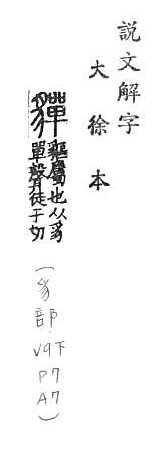 說文解字
大徐本
貚
貙屬也从豸
單聲徒干切
(豸部 V9下 P7 A7)